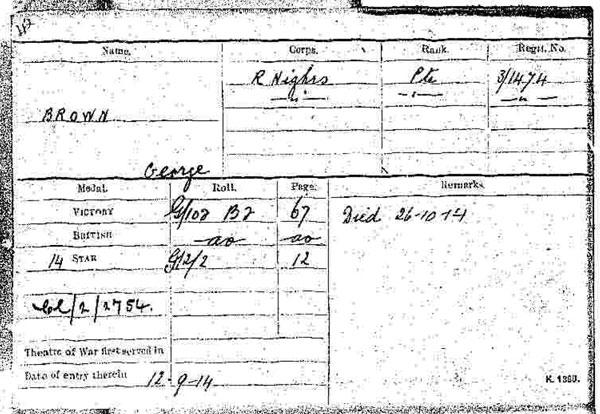 Name. Corps. Rank. Regtl. No.
R Highrs Pte 3/1474
— " — — " — — " —
BROWN
George
Medal. Roll. Page. Remarks.
VICTORY G/102 B2 67 Died 26-10-14
BRITISH — do — do
14 STAR G/2/2 12
/2/2754.
Theatre of War first served in
Date of entry therein 12-9-14
K. 1380.